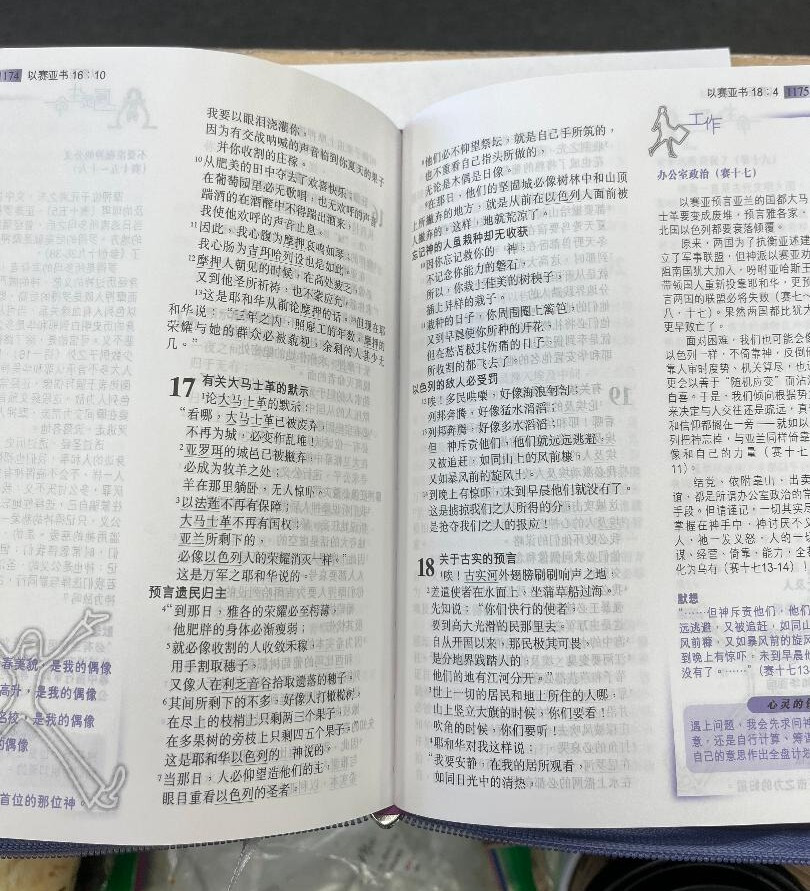 1174 以赛亚书 16：10
我要以眼泪浇灌你，
因为有交战呐喊的声音临到你夏天的果子
并你收割的庄稼。
10从肥美的田中夺去了欢喜快乐；
在葡萄园里必无歌唱，也无欢呼的声音。
踹酒的在酒醡中不得踹出酒来，
我使他欢呼的声音止息。
11因此，我心腹为摩押哀鸣如琴；
我心肠为吉珥哈列设也是如此。
12摩押人朝见的时候，在高处疲乏，
又到他圣所祈祷，也不蒙应允。
13这是耶和华从前论摩押的话。14但现在耶
和华说：“三年之内，照雇工的年数，摩押的
荣耀与她的群众必被藐视，余剩的人甚少无
几。”
17 有关大马士革的默示
1论大马士革的默示：
“看哪，大马士革已被废弃，
不再为城，必变作乱堆！
2亚罗珥的城邑已被撇弃，
必成为牧羊之处；
羊在那里躺卧，无人惊吓。
3以法莲不再有保障；
大马士革不再有国权；
亚兰所剩下的，
必像以色列人的荣耀消灭一样。”
这是万军之耶和华说的。
预言遗民归主
4“到那日，雅各的荣耀必至枵薄，
他肥胖的身体必渐瘦弱；
5就必像收割的人收敛禾稼，
用手割取穗子，
又像人在利乏音谷拾取遗落的穗子；
6其间所剩下的不多，好像人打橄榄树，
在尽上的枝梢上只剩两三个果子；
在多果树的旁枝上只剩四五个果子。”
这是耶和华以色列的　神说的。
7当那日，人必仰望造他们的主，
眼目重看以色列的圣者。
春美貌，是我的偶像
高升，是我的偶像
名校，是我的偶像
的偶像
首位的那位神。
以赛亚书 18：4 1175
8他们必不仰望祭坛，就是自己手所筑的，
也不重看自己指头所做的，
无论是木偶是日像。
9在那日，他们的坚固城必像树林中和山顶
上所撇弃的地方，就是从前在以色列人面前被
人撇弃的。这样，地就荒凉了。
忘记神的人虽栽种却无收获
10因你忘记救你的　神，
不记念你能力的磐石；
所以，你栽上佳美的树秧子，
插上异样的栽子。
11栽种的日子，你周围圈上篱笆，
又到早晨使你所种的开花；
但在愁苦极其伤痛的日子，
所收割的都飞去了。
以色列的敌人必受罚
12唉！多民哄嚷，好像海浪匉訇；
列邦奔腾，好像猛水滔滔；
13列邦奔腾，好像多水滔滔；
但　神斥责他们，他们就远远逃避，
又被追赶，如同山上的风前糠，
又如暴风前的旋风土。
14到晚上有惊吓，未到早晨他们就没有了。
这是掳掠我们之人所得的分，
是抢夺我们之人的报应！
18 关于古实的预言
1唉！古实河外翅膀刷刷响声之地，
2差遣使者在水面上，坐蒲草船过海。
先知说：“你们快行的使者，
要到高大光滑的民那里去。
自从开国以来，那民极其可畏，
是分地界践踏人的，
他们的地有江河分开。”
3世上一切的居民和地上所住的人哪，
山上竖立大旗的时候，你们要看！
吹角的时候，你们要听！
4耶和华对我这样说：
“我要安静，在我的居所观看，
如同日光中的清热，
工作
办公室政治（赛十七）
以赛亚预言亚兰的国都大马
士革要变成废堆，预言雅各家：
北国以色列都要衰落倾覆。
原来，两国为了抗衡亚述建
立了军事联盟，但神派以赛亚劝
阻南国犹大加入，吩咐亚哈斯王
带领国人重新投靠耶和华，更预
言两国的联盟必将失败（赛七
八，十七）。果然两国都比犹大
更早败亡了。
面对困难，我们也可能会像
以色列一样，不倚靠神，反倒倚
靠人审时度势、机关算尽，也
更会以善于“随机应变”而沾沾
自喜。于是，我们倾向根据势
来决定与人交往还是疏远，真
和信仰都搁在一旁——就如以
列把神忘掉，与亚兰同样倚靠
像和自己的力量（赛十七
11）。
结党、依附靠山、出卖
谊，都是所谓办公室政治的常
手段。但请谨记，一切其实尽
掌握在神手中，神讨厌不义
人，他一发义怒，人的一切
谋、经营、倚靠、能力，全
化为乌有（赛十七13-14）！
默想
“……但神斥责他们，他们
远逃避，又被追赶，如同山
风前糠，又如暴风前的旋风
到晚上有惊吓，未到早晨他
没有了。……”（赛十七13-
心灵的
遇上问题，我会先求问神
意，还是自行计算、筹谋
自己的意思作出全盘计划